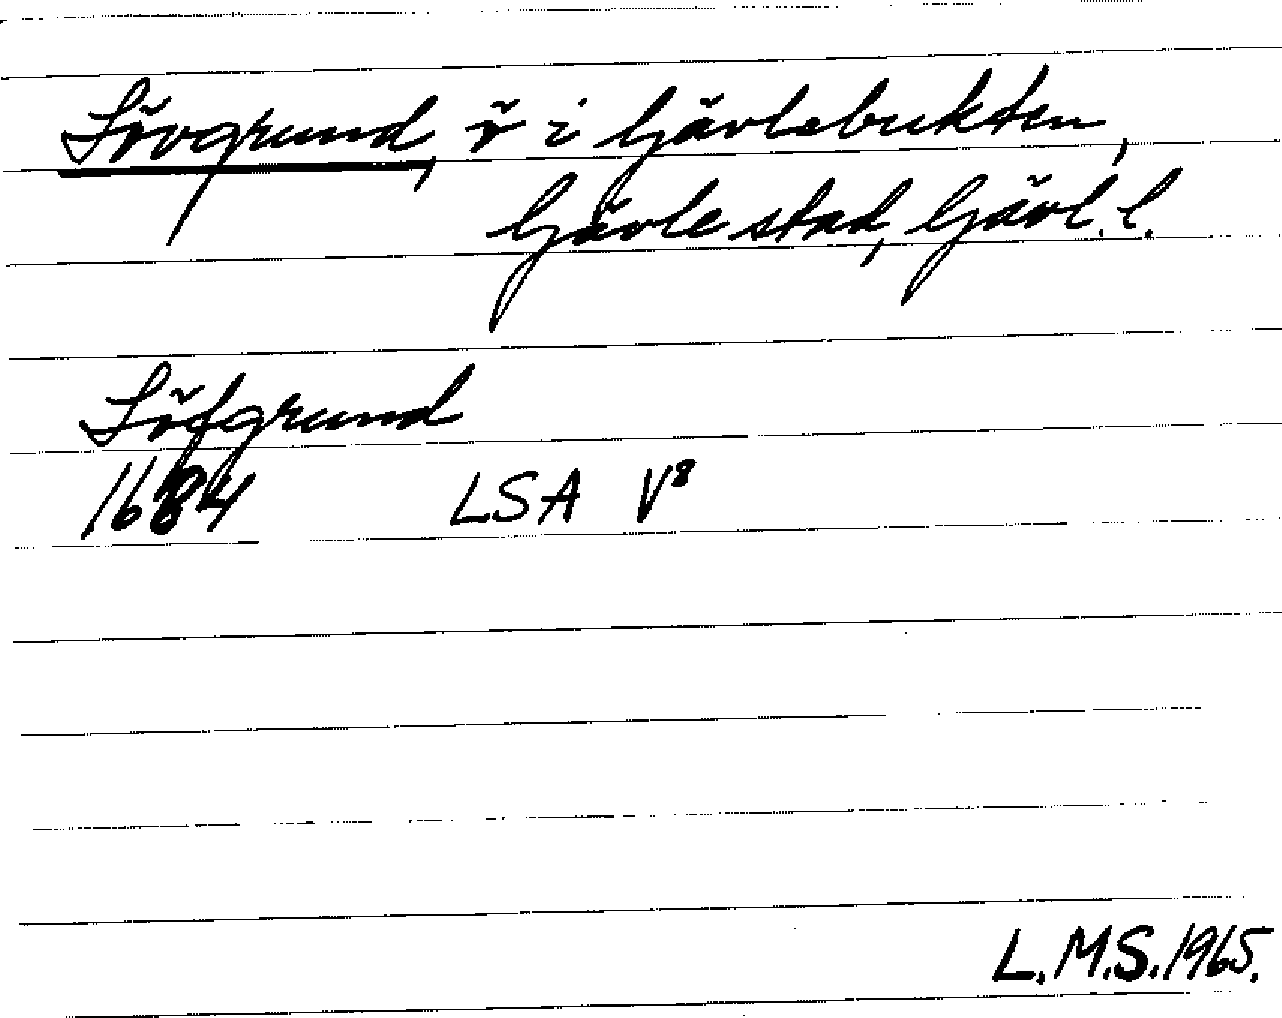 Lövgrund, ö i Gävlebukten,
Gävle stad, Gävl. l.
Löfgrund
1684 LSA V⁸
L.M.S. 1965.